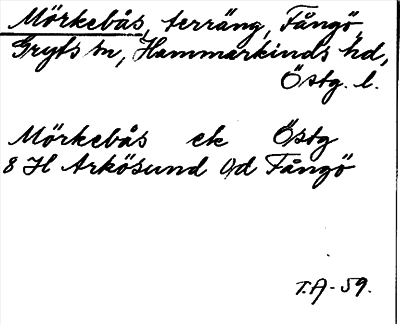 Mörkebås, terräng, Fångö,
Gryts sn, Hammarkinds hd,
Östg. l.
Mörkebås ek Östg
8 H Arkösund 0/d Fångö
T.A-59.